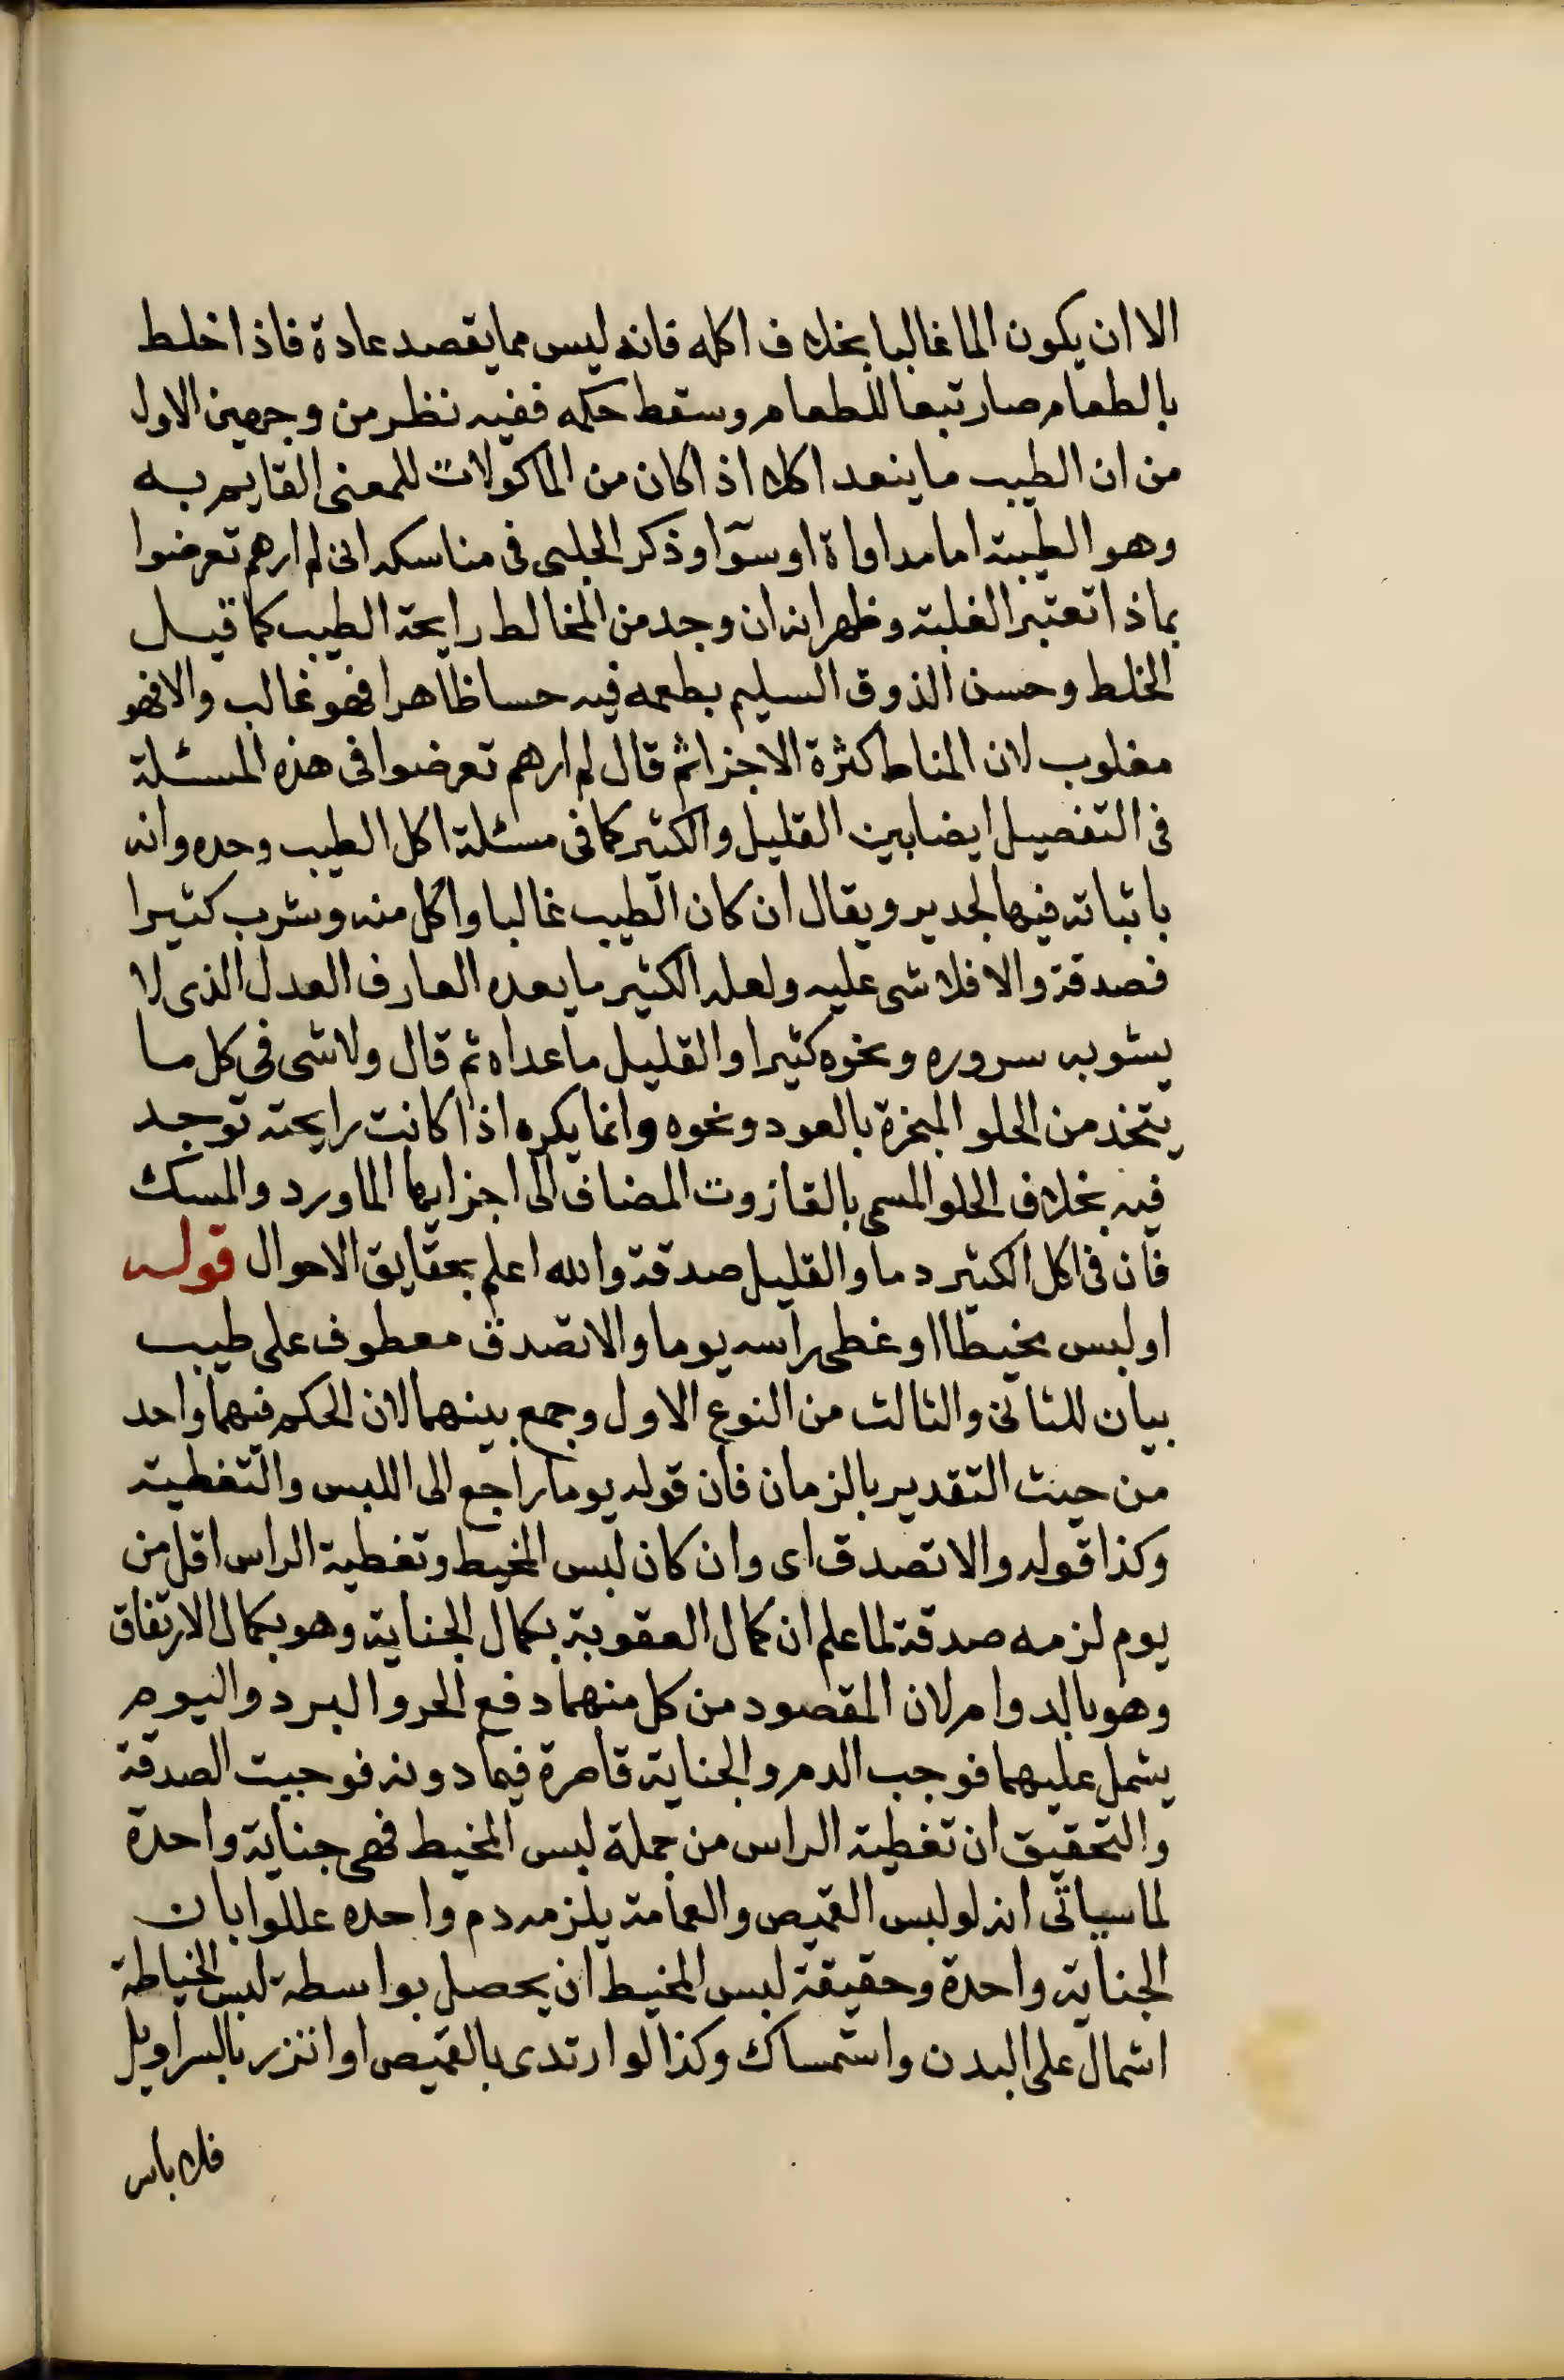 الا ان يكون الما غالبا بخلاف اكله فانه ليس مما يقصد عادة فاذا خلط
بالطعام صار تبعا للطعام وسقط حكمه ففيه نظر من وجهين الاول
من ان الطيب ما ينعد اكلا اذا كان من الماكولات للمعنى القايم به
وهو الطيبة اما مداواة او سوآ وذكر الحلبى فى مناسكه انى لم ارهم تعرضوا
بماذا تعتبر الغلبة وظهر انه ان وجد من المخالط رايحة الطيب كما قيل
الخلط وحسن الذوق السليم بطعمه فيه حسا ظاهرا فهو غالب والا فهو
مغلوب لان المناط كثرة الاجزا ثم قال لم ارهم تعرضوا فى هذه المسئلة
فى التفصيل ايضا بين القليل والكثير كما فى مسئلة اكل الطيب وحده وانه
باثباته فيها لجدير ويقال ان كان الطيب غالبا واكل منه وشرب كثيرا
فصدقة والا فلا شى عليه ولعله الكثير ما يعده العارف العدل الذى لا
يشوبه سروره ونحوه كثيرا والقليل ما عداه ثم قال ولا شى فى كل ما
يتخذ من الحلو المبخرة بالعود ونحوه وانما يكره اذا كانت رايحته توجد
فيه بخلاف الحلو المسمى بالقازوت المضاف الى اجزايها الماورد والمسك
فان فى اكل الكثير دما والقليل صدقة والله اعلم بحقايق الاحوال قوله
او لبس مخيطا او غطى راسه يوما والا تصدق معطوف على طيب
بيان للثانى والثالث من النوع الاول وجمع بينهما لان الحكم فيهما واحد
من حيث التقدير بالزمان فان قوله يوما راجع الى اللبس والتغطية
وكذا قوله والا تصدق اى وان كان لبس المخيط وتغطية الراس اقل من
يوم لزمه صدقة لما علم ان كمال العقوبة بكمال الجناية وهو بكمال الارتفاق
وهو بالدوام لان المقصود من كل منهما دفع الحر والبرد واليوم
يشمل عليهما فوجب الدم والجناية قاصرة فيما دونه فوجبت الصدقة
والتحقيق ان تغطية الراس من جملة لبس المخيط فهى جناية واحدة
لما سياتى انه لو لبس القميص والعمامة يلزمه دم واحده عللوا بان
الجناية واحدة وحقيقة لبس المخيط ان يحصل بواسطة لبس الخياطة
اشمال على البدن واستمساك وكذا لو ارتدى بالقميص او اتزر بالسراويل
فلا باس